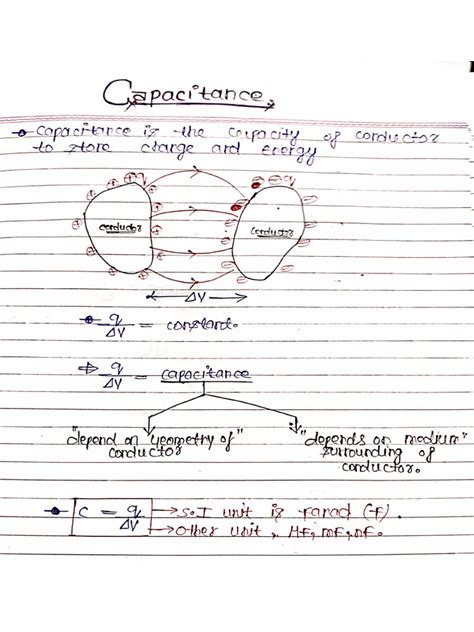 Capacitance
Capacitance is the capacity of conductor
to store charge and energy
⊕ ⊕ ⊕ q
⊖ ⊖ ⊖ q
conductor
conductor
ΔV
q/ΔV = constant.
⇒ q/ΔV = capacitance
"depend on Geometry of"
conductor
"depends on medium"
surrounding of
conductor.
C = q/ΔV → S.I unit is farad (f).
→ Other unit, μf, mf, nf.